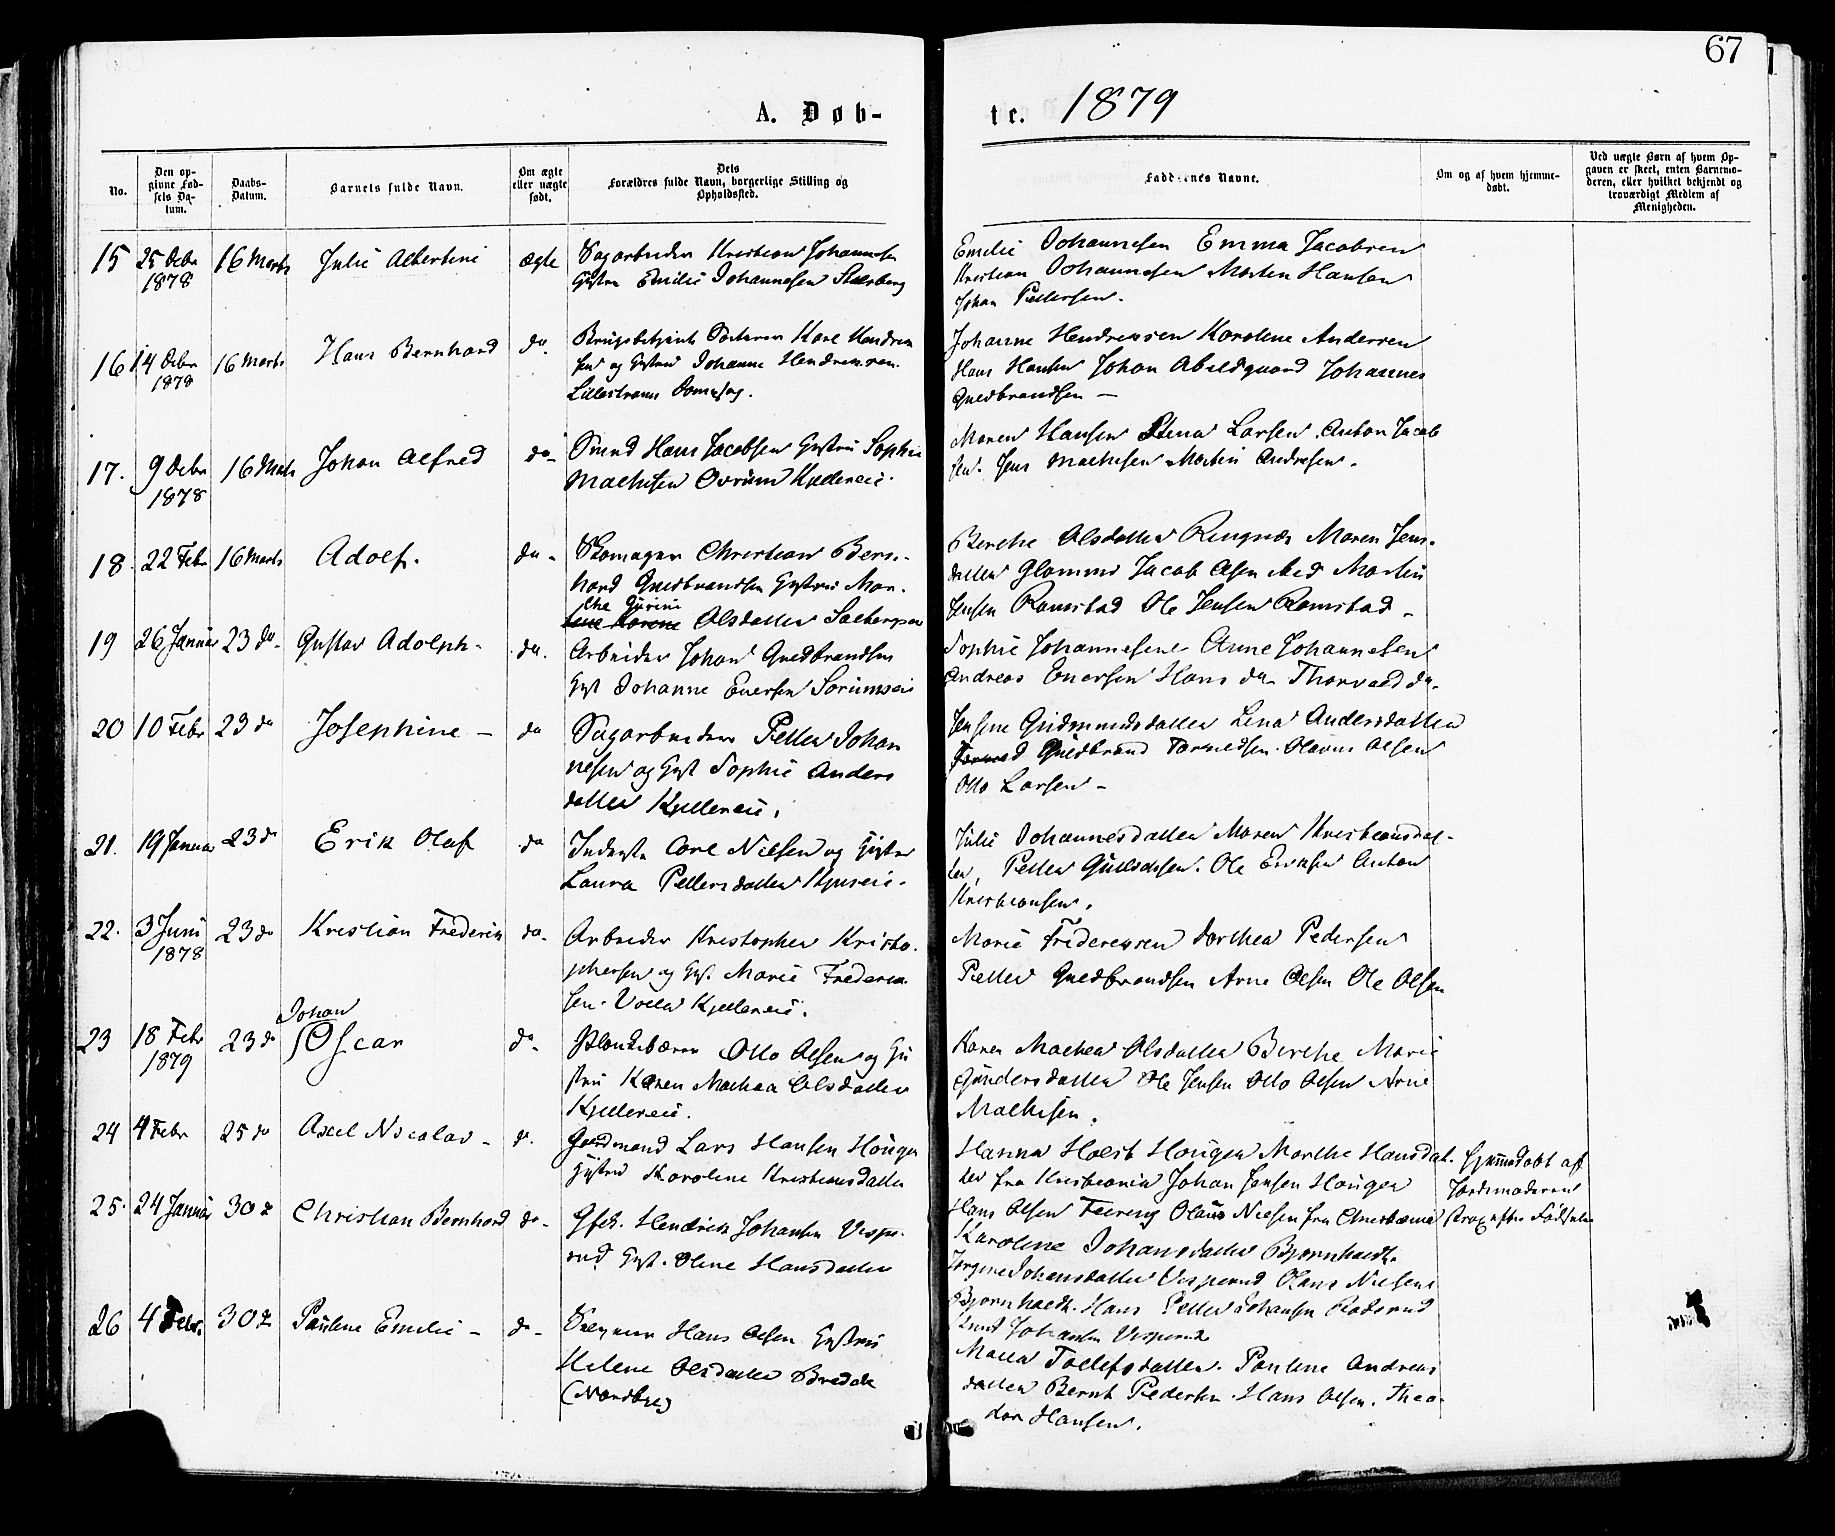 67
A. Døb-
te. 1879
No.
Den op-
givne Fød-
sels Da-
tum.
Daabs-
Datum.
Barnets fulde Navn.
Om ægte
eller uægte
født.
Dels
Forældres fulde Navn, borgerlige Stilling og
Opholdssted.
Faddernes Navne.
Om og af hvem hjemme-
døbt.
Ved uægte Børn af hvem Op-
gaven er skeet, enten Barnemo-
deren, eller hvilket bekjendt og
troværdigt Medlem af
Menigheden.
15 25 Debr 16 Marts Julie Albertine ægte Sagarbeider Kristian Johannesen
1878 Hustru Emilie Johannesen
Emilie Johannesen Emma Jacobsen
Kristian Johannesen Morten Hansen
Johan Pettersen.
16 14 Debr 16 Marts Hans Bernhard do. Karl Hendrik
1878 sen og Hustru Johanne Hendriksen
Lillestrøm Damsag.
Johanne Hendriksen Karoline Andersen
Hans Hansen Johan Abeldgaard Johannes
Guldbrandsen —
17. 9 Debr 16 Marts Johan Alfred do- Smed Hans Jacobsen Hustru Sophie
1878 Mathisen Ovrum Kjellereie.
Maren Hansen Stena Larsen Anton Jacob
sen. Jens Mathisen Martin Andresen.
18. 22 Febr 16 Marts Adolf. do- Skomager Christian Bern-
hard Guldbrandsen Hustru Mar-
the Gurine
Olsdatter
Berthe Olsdatter Ringnæs Maren Jens-
datter Glommen Jacob Olsen Martin
Jensen Ramstad Ole Jensen Ramstad -
19 26 Januar 23 do- Gustav Adolph- do. Arbeider Johan Guldbrandsen
Hust Johanne Evensen Sørumseie
Sophie Johannesen- Anne Johannesen
Andreas Evensen Hans do- Thorvald do-
20 10 Febr 23 do Josephine — do Sagarbeider Petter Johan
nesen og Hust Sophie Anders
datter Kjellereie.
Jensine Gudmundsdatter Lina Andersdatter
Guldbrand Olaves Olsen
Otto Larsen -
21. 19 Januar 23 do Erik Olaf do Inderste Carl Nielsen og Hustru
Laura Pettersdatter
Julie Johannesdatter Maren Kristiansdat-
ter, Petter Ole Eriksen Anton
Kristiansen.
22. 3 Juni 23 do Kristian Frederik do- Arbeider Kristopher Kristo
1878 phersen og Hust. Marie Frederik
sen. Volla Kjellereie.
Marie Frideriksen Dorthea Pedersen
Petter Guldbrandsen Arne Olsen Ole Olsen
23 18 Febr 23 do Johan Oscar do- Plankebærer Otto Olsen og Hu
1879 stru Karen Mathea Olsdatter
Kjellereie.
Karen Mathea Olsdatter Berthe Marie
Gundersdatter Ole Jensen Otto Olsen Arne
Mathisen.
24 4 Febr 25 do Axel Nicolai - d. Gaardmand Lars Hansen Haugen
Hustru Karoline Kristiansdatter
Hanna Holst Haugen Marthe Hansdat-
ter fra Kristiania Johan Jensen Haugen
Hans Olsen Olaus Nielsen fra Christiania
Hjemmedøbt af
Jordemoderen
strax efter Fødselen
25. 24 Januar 30 Christian Bernhard do- Gfd. Hendrik Johansen Vespe-
rud Hust. Oline Hansdatter
Karoline Johansdatter Bjørnholdt.
Jørgine Johansdatter Vesperud Olaus Nielsen
Bjørnholdt. Hans Petter Johansen
Knut Johansen Vesperud
26 4 Febr. 30 Pauline Emilie - do- Hans Olsen Hustru
Helene Olsdatter
(Nordbye)
Mathea Tollefsdatter. Pauline Andreas
datter Bernt Pedersen. Hans Olsen. Theo-
dor Hansen.